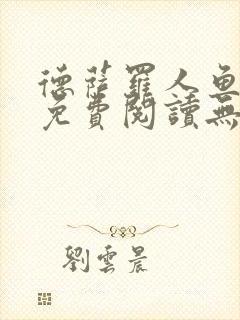 德薩羅人魚
免費閱讀無
劉雲晨